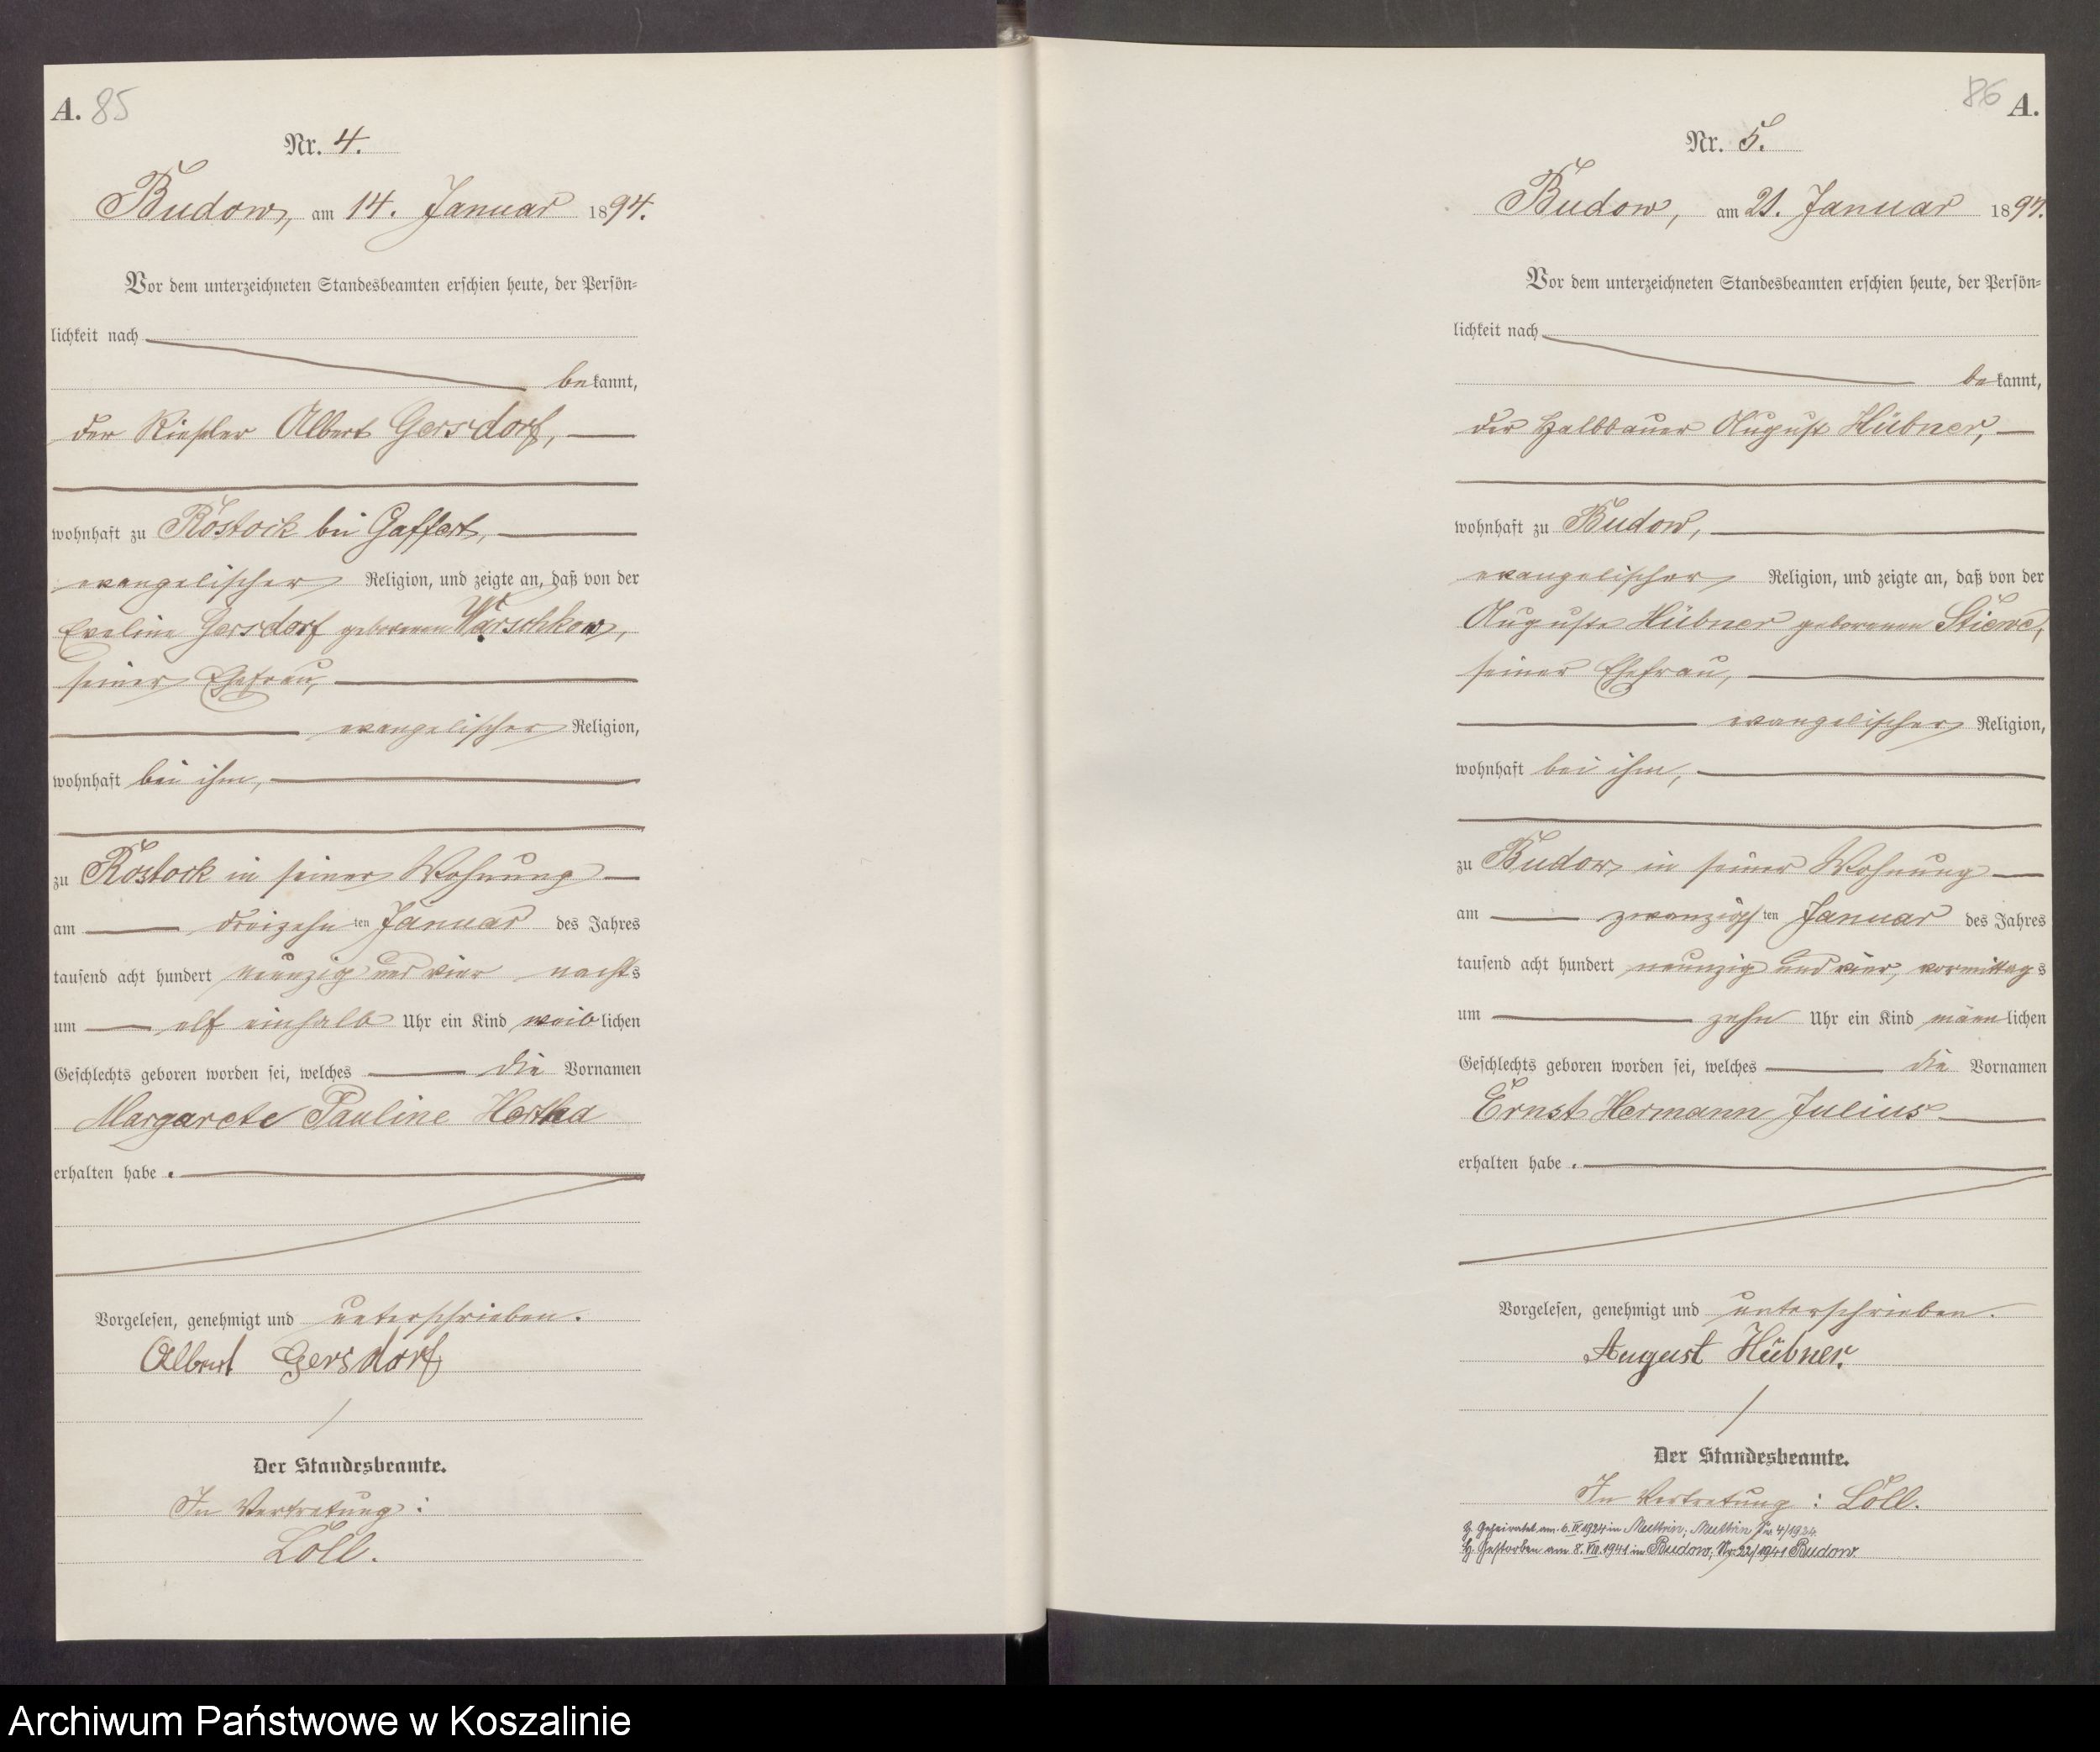 A. 85
Nr. 4.
Budow, am 14. Januar 1894.
Vor dem unterzeichneten Standesbeamten erschien heute, der Persön-
lichkeit nach
bekannt,
der Albert Gersdorf,
wohnhaft zu Rostock bei Gaffert,
evangelischer Religion, und zeigte an, daß von der
Eveline Gersdorf geborenen Warschkow,
seiner Ehefrau,
evangelischer Religion,
wohnhaft bei ihm,
zu Rostock in seiner Wohnung
am dreizehnten Januar des Jahres
tausend acht hundert neunzig und vier nachts
um elf einhalb Uhr ein Kind weiblichen
Geschlechts geboren worden sei, welches die Vornamen
Margarete Pauline Hertha
erhalten habe.
Vorgelesen, genehmigt und unterschrieben.
Albert Gersdorf
Der Standesbeamte.
In Vertretung:
Löll.
86 A.
Nr. 5.
Budow, am 21. Januar 1894.
Vor dem unterzeichneten Standesbeamten erschien heute, der Persön-
lichkeit nach
bekannt,
der Halbbauer August Hübner,
wohnhaft zu Budow,
evangelischer Religion, und zeigte an, daß von der
Auguste Hübner geborenen Stiewe,
seiner Ehefrau,
evangelischer Religion,
wohnhaft bei ihm,
zu Budow in seiner Wohnung
am zwanzigsten Januar des Jahres
tausend acht hundert neunzig und vier, vormittags
um zehn Uhr ein Kind männlichen
Geschlechts geboren worden sei, welches die Vornamen
Ernst Hermann Julius
erhalten habe.
Vorgelesen, genehmigt und unterschrieben.
August Hübner.
Der Standesbeamte.
In Vertretung: Löll.
Geheiratet am 6. IV. 1924 in Muttrin, Muttrin Nr. 4/1924.
Gestorben am 8. VIII. 1941 in Budow, Nr. 22/1941 Budow.
Archiwum Państwowe w Koszalinie